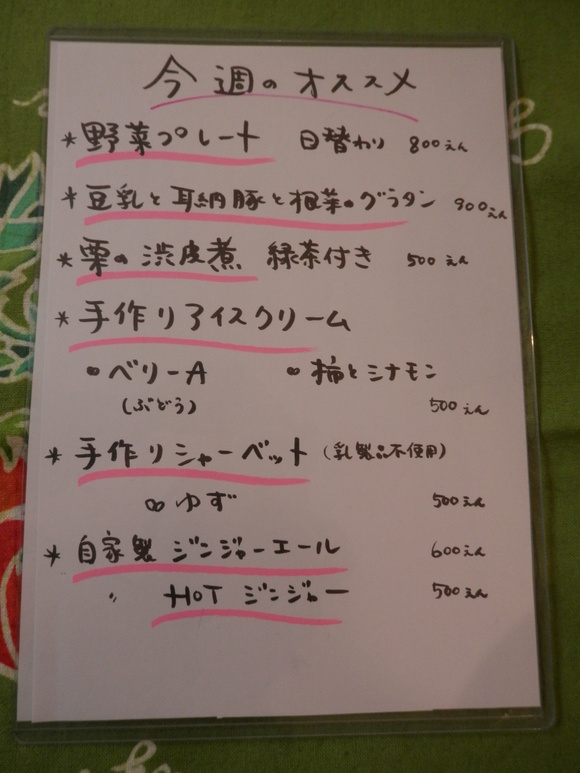 今週のオススメ
* 野菜プレート 日替わり 800えん
* 豆乳と耳納豚と根菜のグラタン 900えん
* 栗の渋皮煮 緑茶付き 500えん
* 手作りアイスクリーム
• ベリーA • 柿とシナモン
(ぶどう) 500えん
* 手作りシャーベット (乳製品不使用)
∞ ゆず 500えん
* 自家製 ジンジャーエール 600えん
〃 HOT ジンジャー 500えん